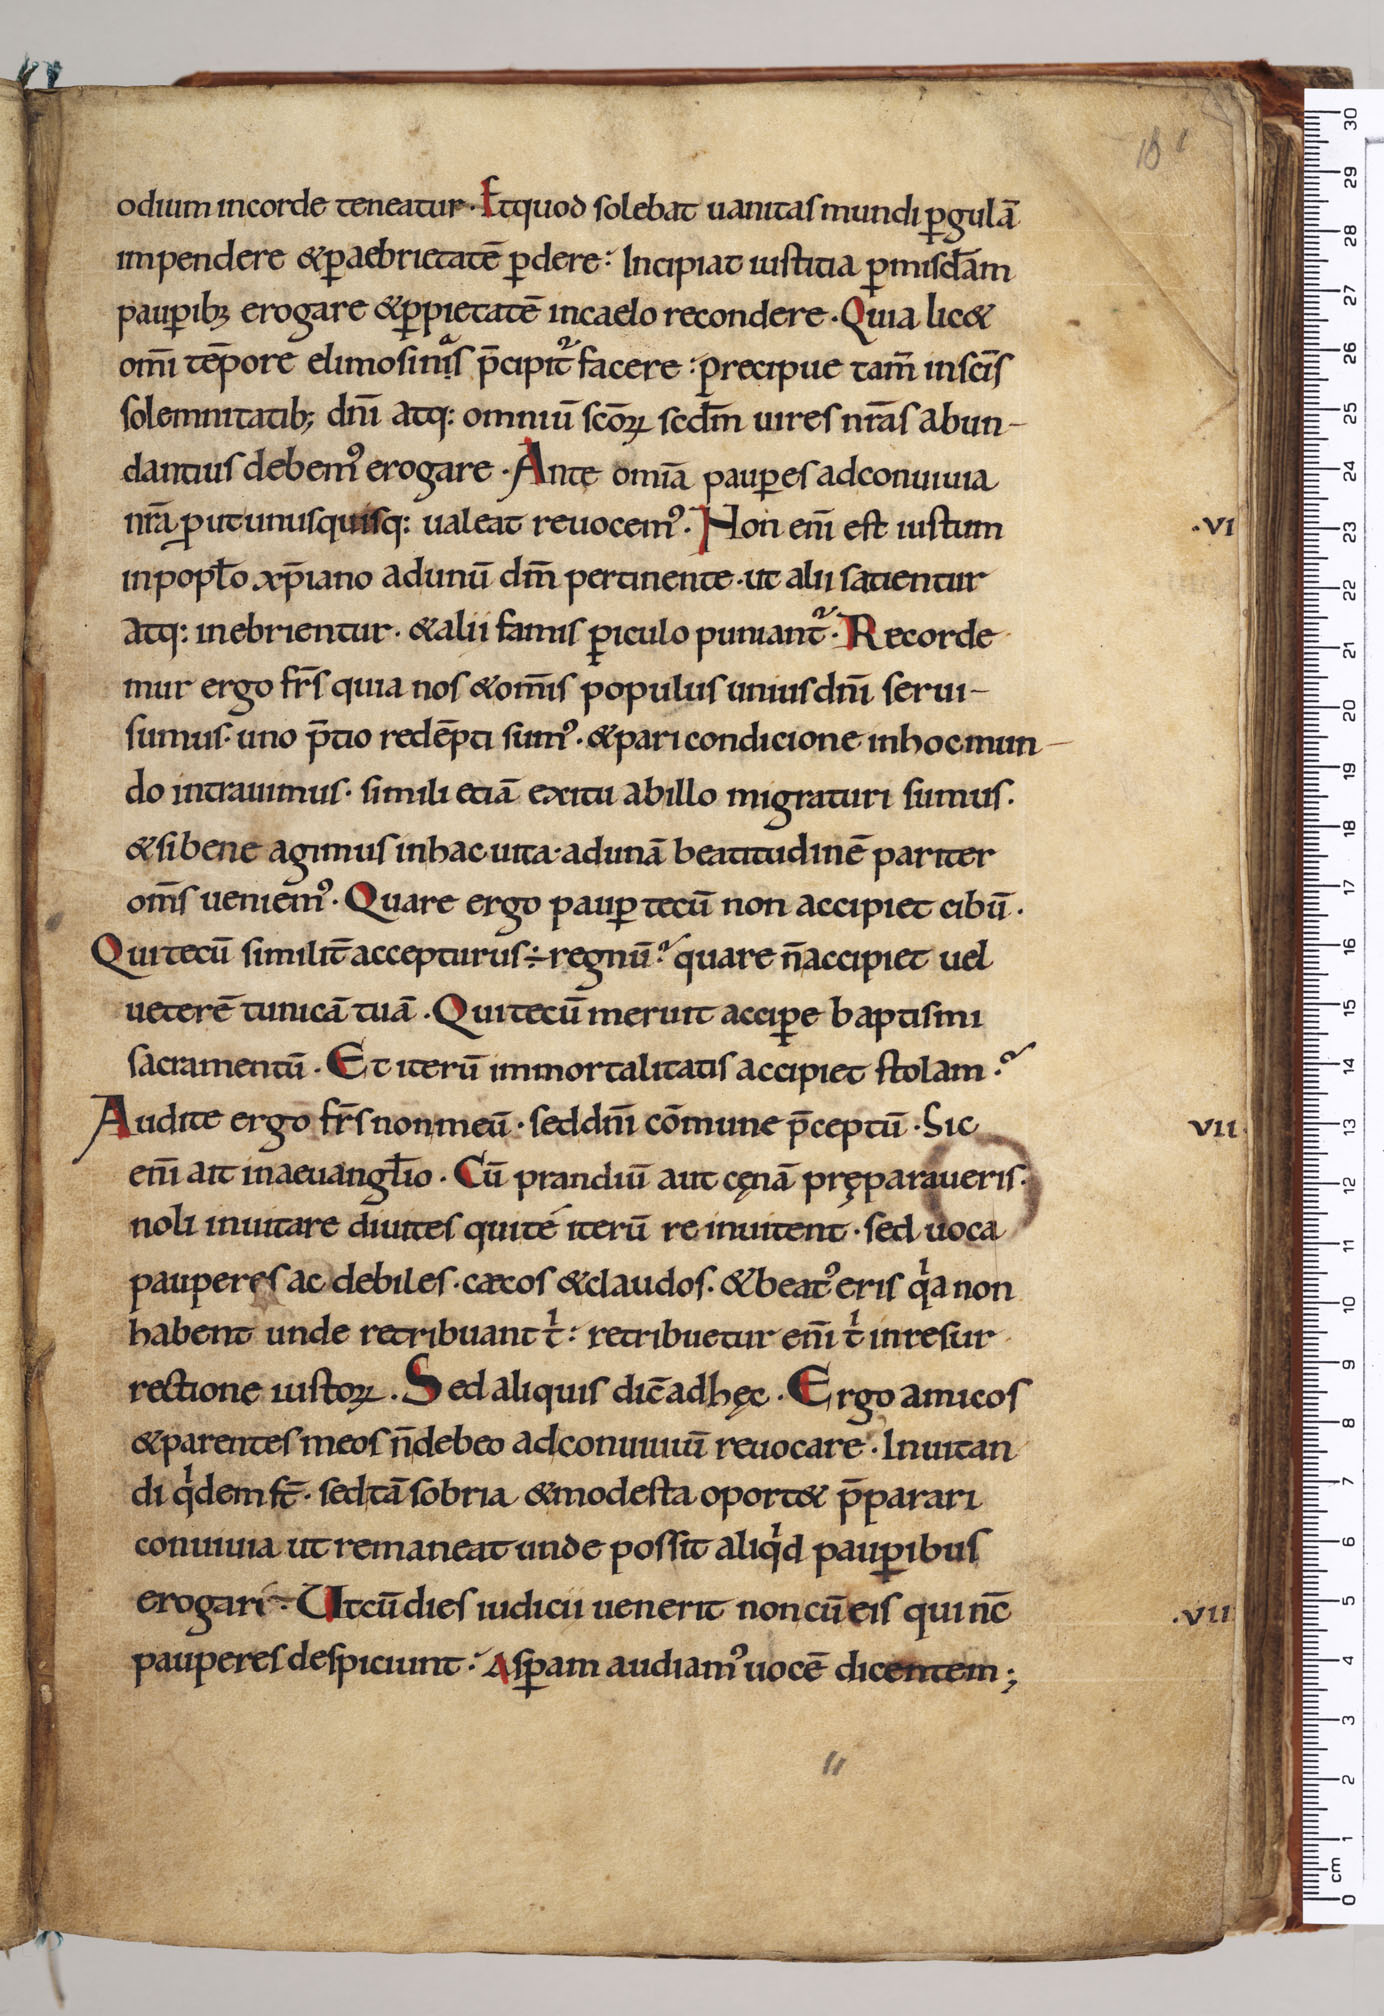 10 1
odium incorde teneatur. Etquod solebat uanitas mundi ꝑgulā
impendere &ꝑaebrietatē ꝑdere: Incipiat iustitia ꝑmisc̄dam
pauꝑibꝫ erogare &ꝑpietatē incaelo recondere. Quia lic&
om̄i tēpore elimosinas p̄cipit᷑ facere: precipue tam̄ insc̄is
solemnitatib; dn̄i atq: omniū sc̄oꝝ scd̄m uires nr̄as abun-
dantius debemꝰ erogare. Ante omīa pauꝑes adconuiuia
nr̄a ꝓut unusquisq: ualeat reuocemꝰ. Non eni̅ est iustum
.VI
inpopl̄o xp̄iano adunū dm̄ pertinente. ut alii satientur
atq: inebrientur. &alii famis ꝑiculo puniant᷑. Recorde
mur ergo fr̄s quia nos &om̄is populus unius dn̄i serui-
sumus. uno p̄tio redēpti sumꝰ. &pari condicione inhoc mun-
do intrauimus. simili etiā exitu abillo migraturi sumus.
&si bene agimus inhac uita. adunā beatitudinē pariter
om̄s ueniemꝰ. Quare ergo pauꝑ tecū non accipiet cibū.
Qui tecū similit̄ accepturus ÷ regnū? quare n̄ accipiet uel
ueterē tunicā tuā. Qui tecū meruit acciꝑe baptismi
sacramentū. Et iterū immortalitatis accipiet stolam?
Audite ergo fr̄s non meū. sed dn̄i cōmune p̄ceptū. Sic
VII.
eni̅ ait inaeuangl̄io. Cū prandiū aut cęnā pręparaueris.
noli inuitare diuites qui té iterū re inuitent. sed uoca
pauperes ac debiles. cæcos &claudos. &beatꝰ eris qͥa non
habent unde retribuant tͥ: retribuetur eni̅ tͥ inresur
rectione iustoꝝ. Sed aliquis dic̄ adhęc. Ergo amicos
&parentes meos n̄ debeo adconuiuiū reuocare. Inuitan
di qͥdem st̄. sed tā sobria &modesta oport& p̄parari
conuiuia ut remaneat unde possit aliqͥd pauꝑibus
erogari. Ut cū dies iudicii uenerit non cū eis qui nc̄
.VII
pauperes despiciunt: Asꝑam audiamꝰ uocē dicentem;